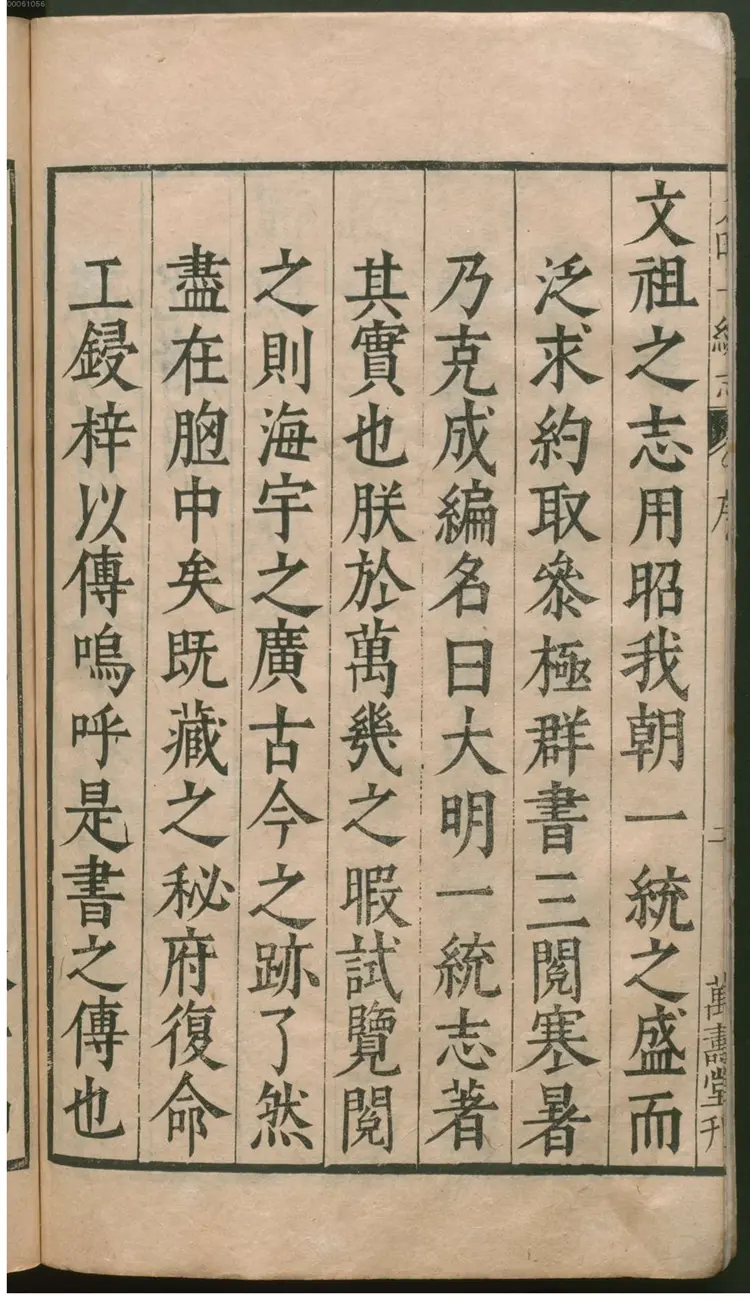 00061056
大明一統志
序
二
萬壽堂刊
文祖之志用昭我朝一統之盛而
泛求約取叅極群書三閱寒暑
乃克成編名曰大明一統志著
其實也朕於萬㡬之暇試覽閱
之則海宇之廣古今之跡了然
盡在胸中矣既藏之秘府復命
工鋟梓以傳嗚呼是書之傳也